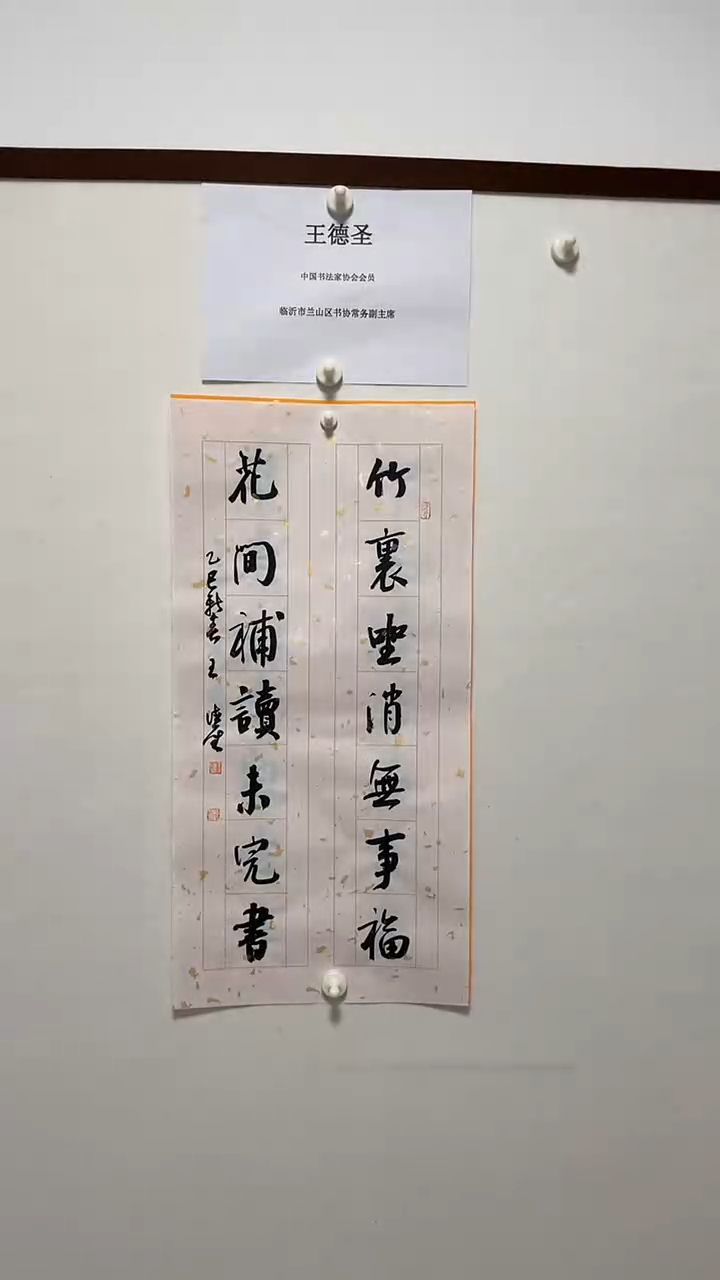 王德圣
中国书法家协会会员
临沂市兰山区书协常务副主席
竹裏坐消無事福
花間補讀未完書
乙巳新春 王德圣